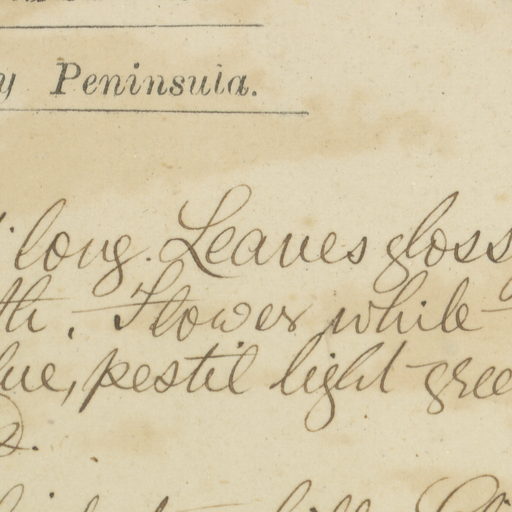 y Peninsula.
long. Leaves gloss
th. Flower white
lue, pestil light gree